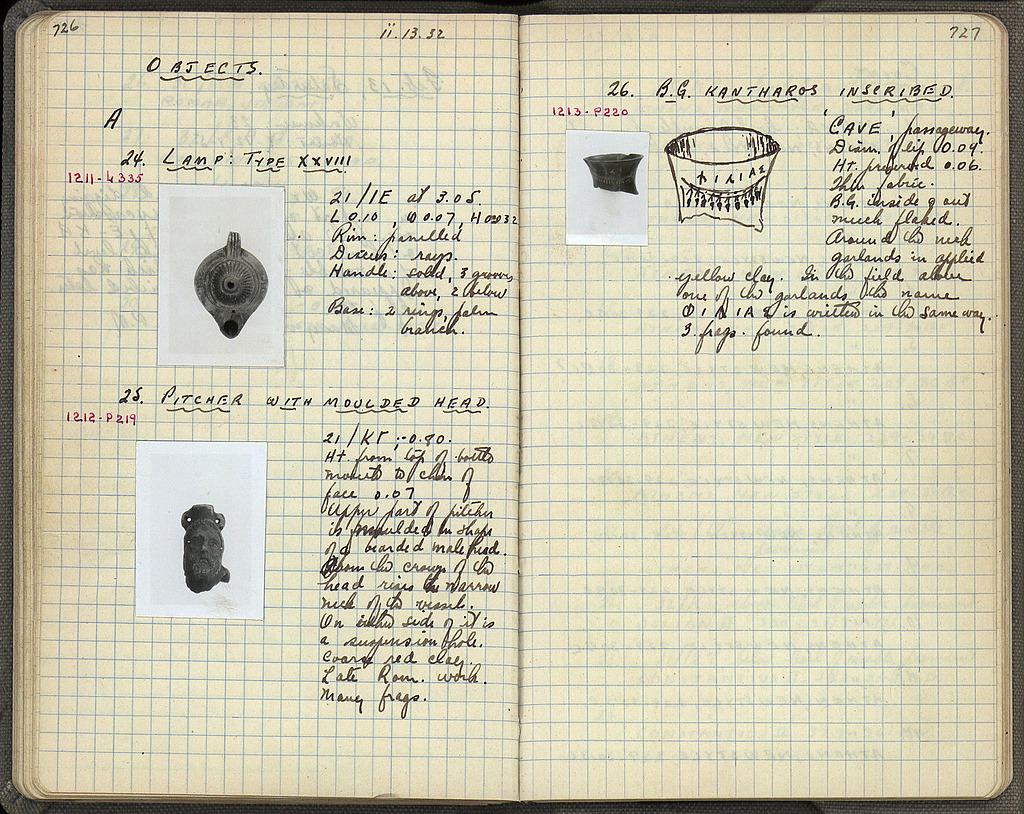 726
ii.13.32
OBJECTS.
A
24. LAMP: TYPE XXVIII
1211-L335
21/IE at 3.05.
L 0.10, Φ 0.07, H 0.032
Rim: panelled
Discus: rays.
Handle: solid, 3 grooves
above, 2 below
Base: 2 rings, palm
branch.
25. PITCHER WITH MOULDED HEAD.
1212-P219
21/ΚΓ :-0.80.
Ht. from top of
mouth to chin of
face 0.07
Upper part of pitcher
is moulded in shape
of a bearded male head.
From the crown of the
head rises the narrow
neck of the vessel.
On either side of it is
a suspension hole.
Coarse red clay.
Late Rom. work.
Many frags.
727
26. B.G. KANTHAROS INSCRIBED.
1213-P220
'CAVE', passageway.
Diam. of lip 0.09.
Ht. preserved 0.06.
Thin fabric.
B.G. inside & out
much flaked.
Around the neck
garlands in applied
yellow clay. In the field above
one of the garlands the name
ΦΙΛΙΑΣ is written in the same way.
3 frags. found.